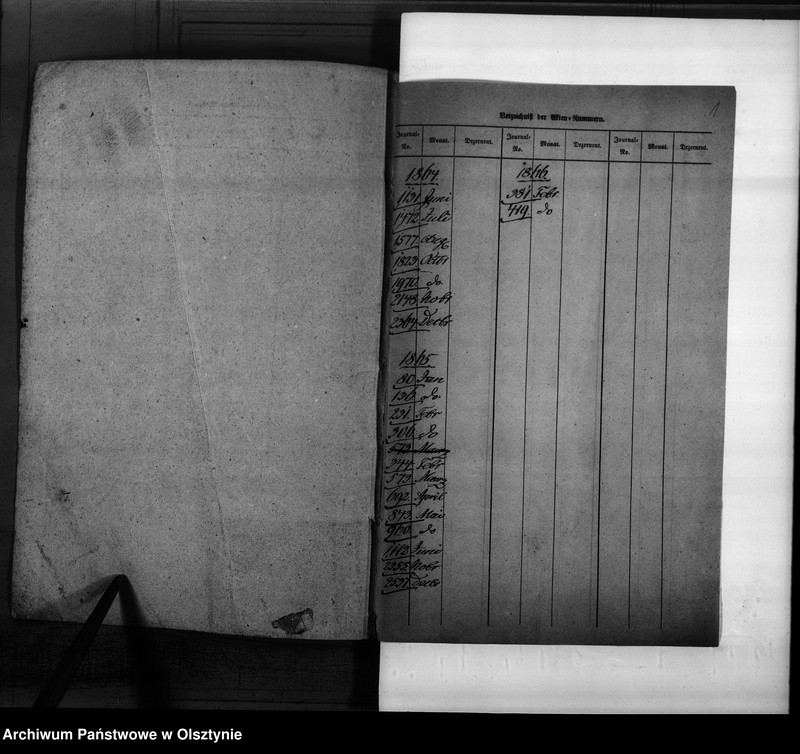 1
Verzeichniß der Akten-Nummern.
Journal-No. Monat. Dezernent. Journal-No. Monat. Dezernent. Journal-No. Monat. Dezernent.
1864.
1131. Juni
1472. Juli
1577.
1823. Octbr
1970. do
2148. Nobr
2364. Decbr
1865
80. Jan
136. do
231. Febr
306. do
573. Marz
344. Febr
573. Marz
692. April
873. Mai
960. do
1112. Juni
2255. Nobr
2521. Decbr
1866
381. Febr
419. do
Archiwum Państwowe w Olsztynie